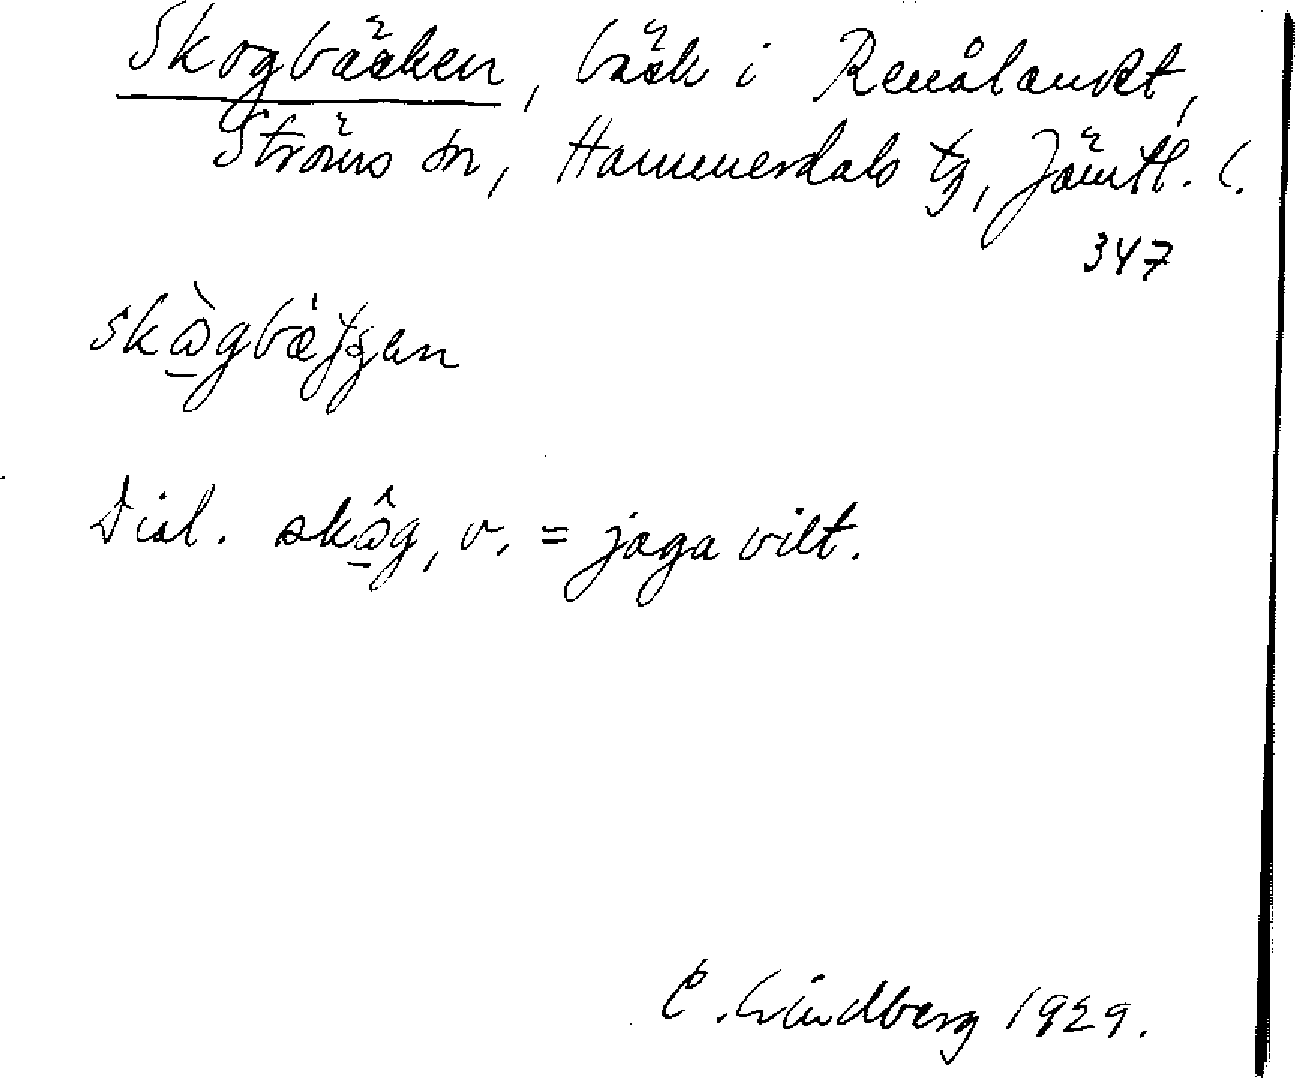 Skogbäcken, bäck i Renålandet,
Ströms sn, Hammerdals tg, Jämtl. l.
347
Dial. skω̂g, v. = jaga vilt.
E. Lindberg 1929.